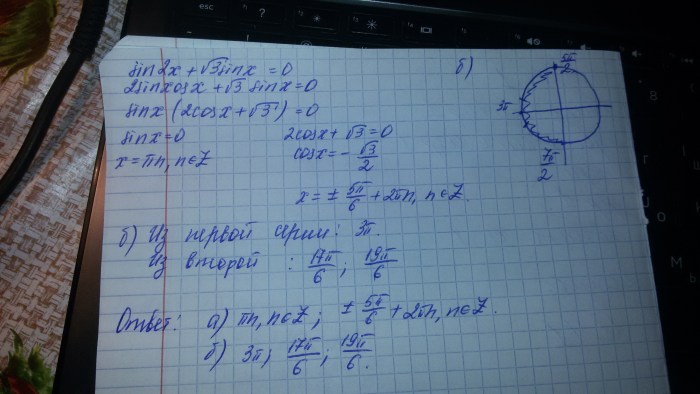 sin2x + √3 sinx = 0
2sinxcosx + √3 sinx = 0
sinx (2cosx + √3) = 0
sinx = 0 2cosx + √3 = 0
x = πn, n∈Z cosx = - √3/2
x = ± 5π/6 + 2πn, n∈Z.
б) Из первой серии: 3π.
Из второй : 17π/6; 19π/6
Ответ: а) πn, n∈Z; ± 5π/6 + 2πn, n∈Z.
б) 3π; 17π/6; 19π/6.
б)
5π/2
3π
7π/2
esc
?